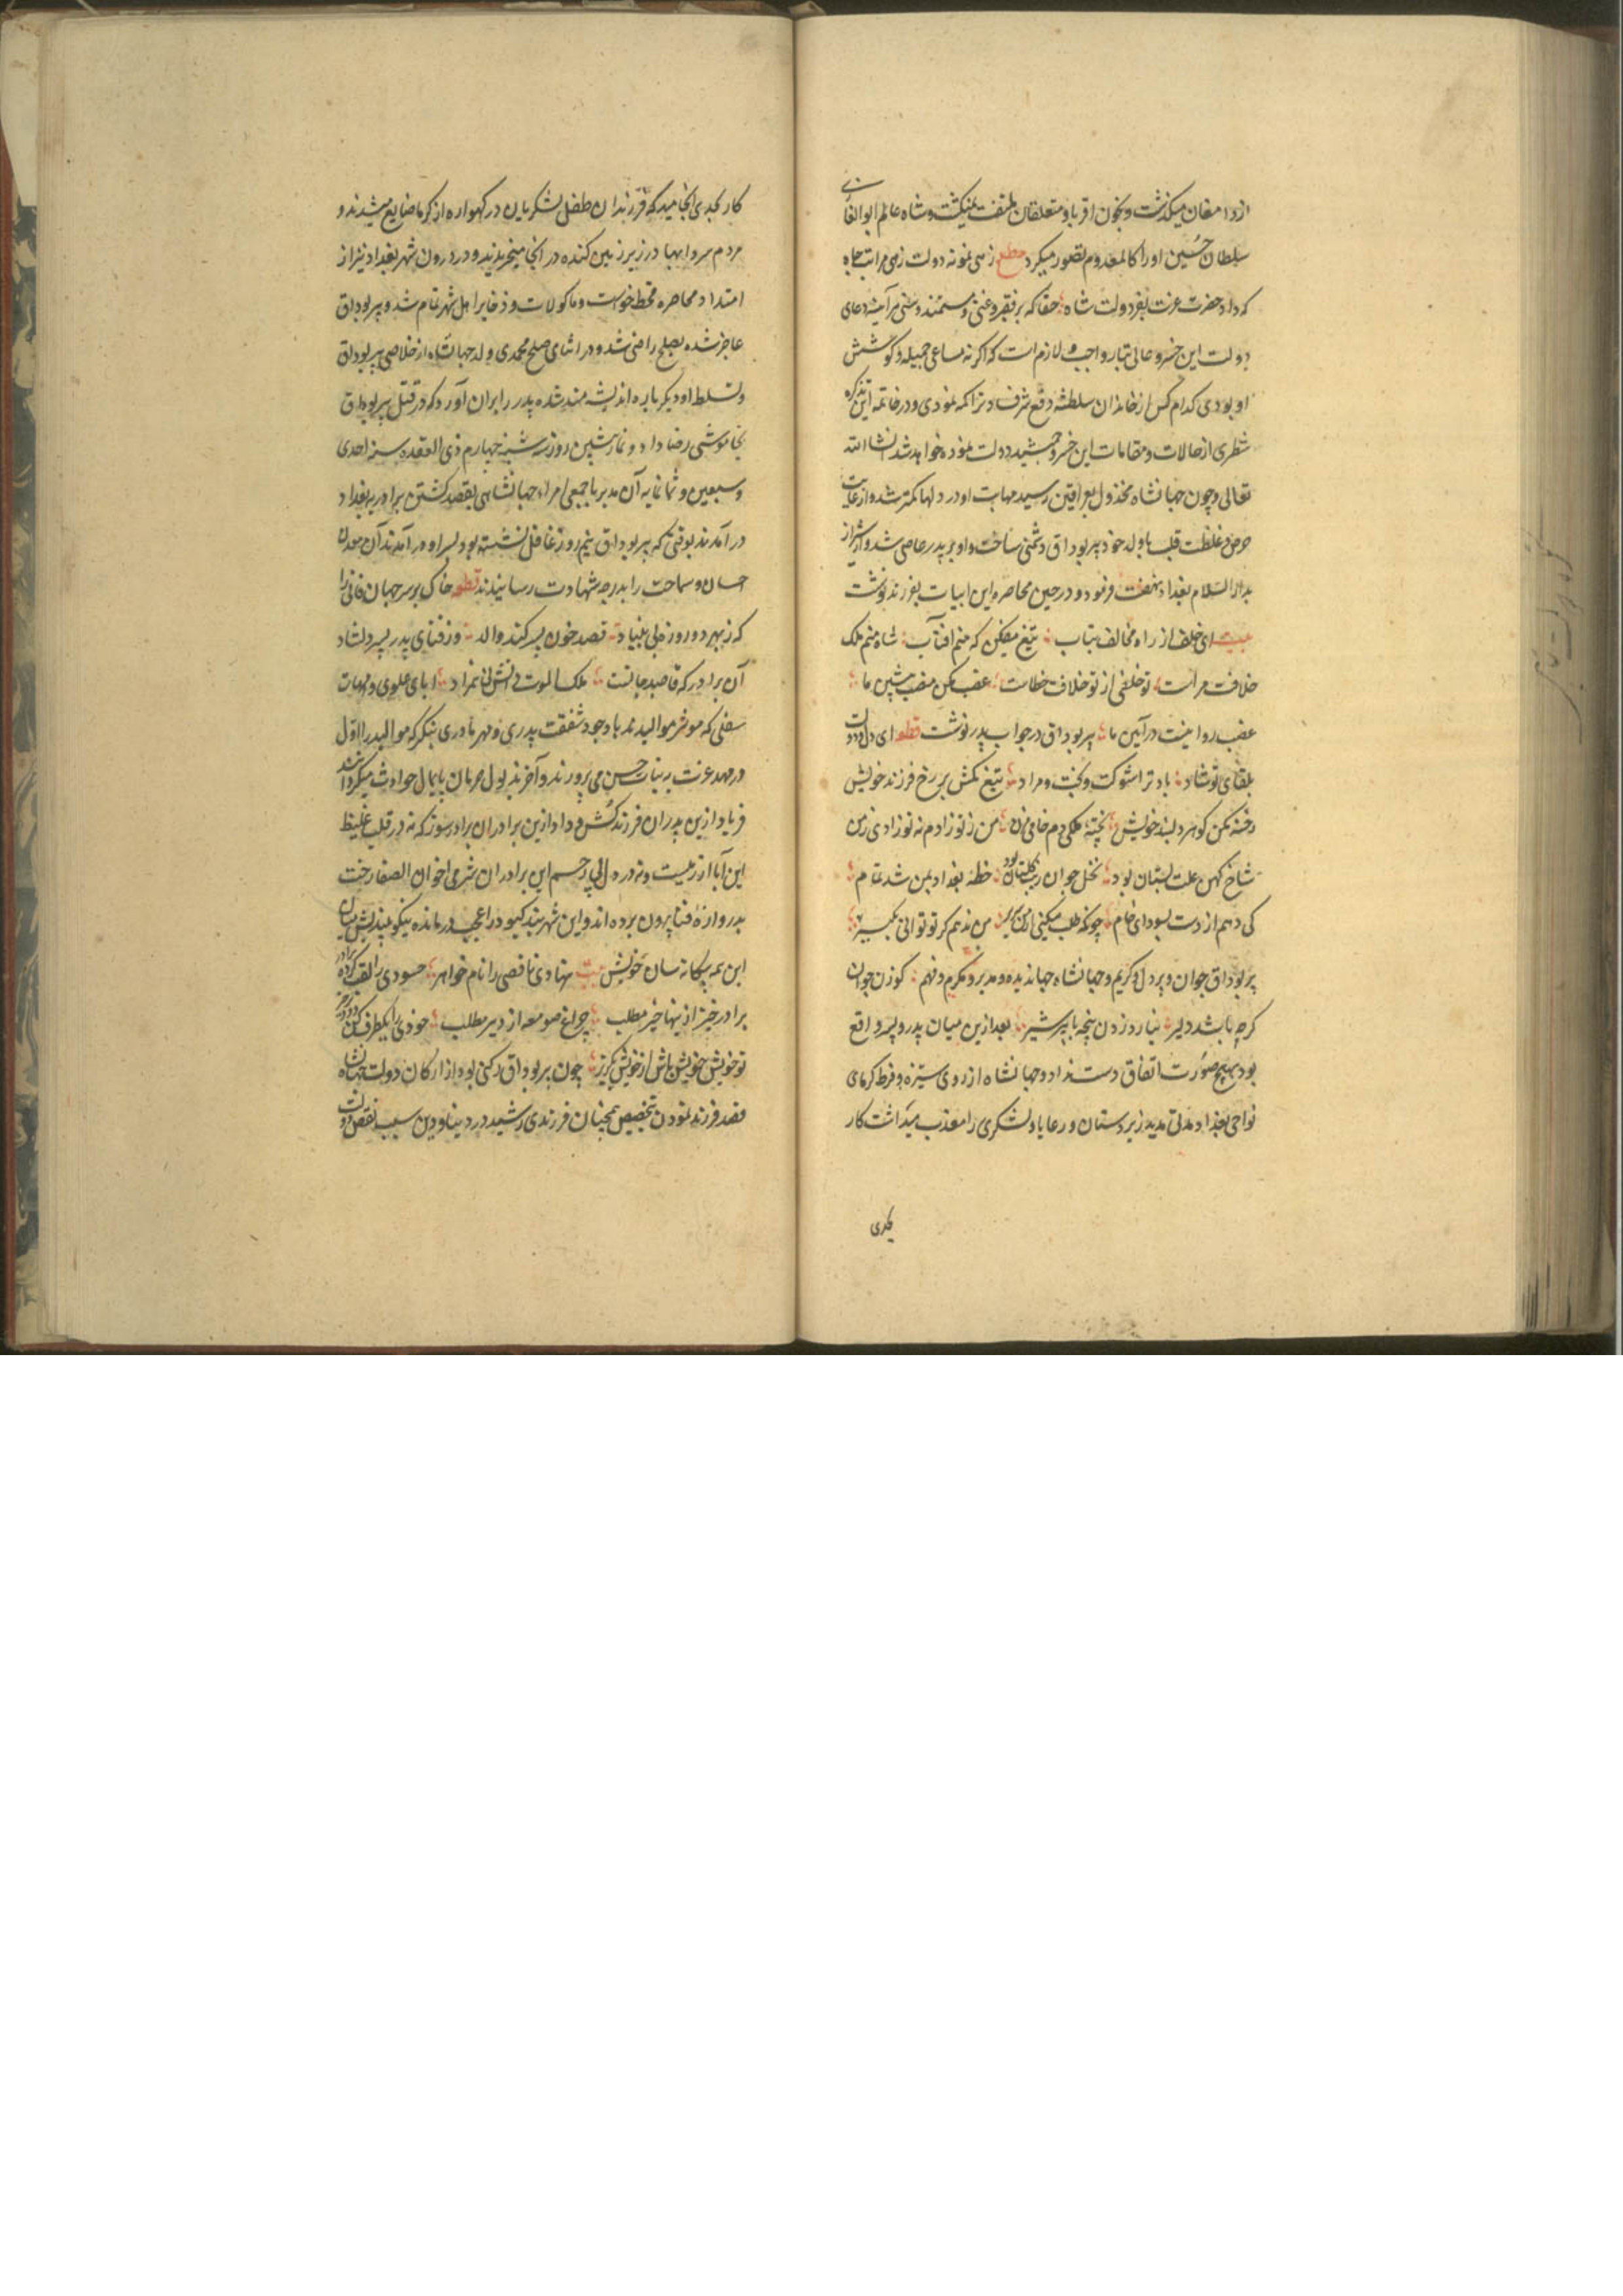 از دامغان میگذشت و بخون اقربا و متعلقان ملتفت نمیگشت و شاه عالم ابو الغازی
سلطان حسین او را کالمعدوم تصور میکرد مطلع زهی نمونه دولت زهی مراتب جاه
که داد حضرت عزت بفر دولت شاه حقا که بر فقیر و غنی و مستمند و سنی هر آینه دعای
دولت این خسرو عالی تبار واجب و لازم است که اگر نه مساعی جمیله و کوشش
او بودی کدام کس از خاندان سلطنه دفع شر فساد تراکمه نمودی و در خاتمه این تذکره
شطری از حالات و مقامات این خسرو جمشید دولت نموده خواهد شد انشا الله
تعالی و چون جهانشاه مخذول بعراقین رسید مهابت او در دلها کمتر شد و از غایت
حرص و غلظت قلب با ولد خود پیر بوداق دشمنی ساخت و او بر پدر عاصی شد و از شیراز
بدار السلام بغداد نهضت فرمود و در حین محاصره این ابیات بفرزند نوشت
بیت ای خلف از راه مخالف متاب تیغ میفکن که منم افتاب شاه منم ملک
خلافت مراست تو خلفی از تو خلافت خطاست غصب مکن منصب پیشین ما
غصب روا نیست در آیین ما پیر بوداق در جواب پدر نوشت قطعه ای دل و دولت
بلقای تو شاد باد ترا شوکت و بخت و مراد تیغ مکش بر رخ فرزند خویش
رخنه مکن گوهر دلبند خویش پخته ملکی دم خامی مزن من ز تو زادم نه تو زادی ز من
شاخ کهن علت بستان بود نخل جوان زیب گلستان بود خطه بغداد بمن شد تمام
کی دهم از دست بسودای خام چونکه طلب میکنی از من سریر من ندهم گر تو توانی بگیر
پیر بوداق جوان و پر دل و کریم و جهانشاه جهاندیده و مدبر و مکرم و فهم گوزن جوان
گرچه باشد دلیر نیارد زدن پنجه با پیر شیر بعد ازین میان پدر و پسر واقع
بود بهیچ صورت اتفاق دست نداد و جهانشاه از روی ستیزه و فرط گرمای
نواحی بغداد مدتی مدید زیردستان و رعایا و لشکری را معذب میداشت کار
بجدی
کار بجدی انجامید که فرزندان طفل لشکریان در گهواره از گرما ضایع میشدند و
مردم سردابها در زیر زمین کنده در انجا میخزیدند و در درون شهر بغداد نیز از
امتداد محاصره قحط خواست و ماکولات و ذخایر اهل شهر تمام شد و پیر بوداق
عاجز شده بصلح راضی شد و در اثنای صلح محمدی ولد جهانشاه از خلاصی پیر بوداق
و تسلط او دیگر باره اندیشه مند شده پدر را بران آورد که در قتل پیر بوداق
بخاموشی رضا داد و نماز پشین روز سه شنبه چهارم ذی القعده سنه احدی
و سبعین و ثمانمایه آن مدبر با جمعی امراء جهانشاهی بقصد کشتن برادر ببغداد
در آمدند بوقتی که پیر بوداق نیم روز غافل نشسته بود بسر او در آمدند آن معدن
احسان و سماحت را بدرجه شهادت رسانیدند قطعه خاک بر سر جهان فانی را
که ز بهر دو روز بی بنیاد قصد خون پسر کند والد وز فنای پدر پسر دلشاد
آن برادر که قاصد جانست ملک الموت دانش نه همزاد ابای علوی و امهات
سفلی که موثر موالیدند با وجود شفقت پدری و مهر مادری بنگر که موالید را اول
در مهد عزت بنبات حسن می پرورند و آخر بذبول حرمان پایمال حوادث میگردانند
فریاد ازین پدران فرزندکش و داد ازین برادران برادرسوز که نه در قلب غلیظ
این آبا آزرمیست و نه در دل بی رحم این برادران شرمی اخوان الصفا رخت
بدروازه فنا بیرون برده اند و این شهربند کبود را عجب درمانده نیکو بیندیش میان
این همه بیگانه سان خویش بیت نهادی ناقصی را نام خواهر حسودی را لقب کرده برادر
برادر خیز ازینها خیر مطلب چراغ صومعه از دیر مطلب خودی را یکطرف کن دور بگریز
تو خویش خویش باش از خویش بگریز چون پیر بوداق رکنی بود از ارکان دولت جهانشاه
قصد فرزند نمودن بتخصیص همچنان فرزندی رشید در دنیا و دین سبب نقص دولت